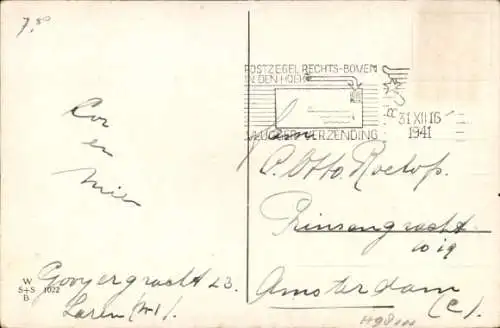 7,50
POSTZEGEL RECHTS-BOVEN
IN DEN HOEK
VLUGGER VERZENDING
31 XII 16
1941
Cor
en
Mies
Fam
C. Otto Roelofs.
Prinsengracht
Amsterdam
(C).
Gooyergracht 23.
Laren (N-H).
W
S+S
B
1022